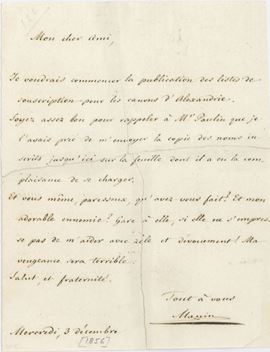 Mon cher Ami,
Je voudrais commencer la publication des listes de
souscription pour les canons d'Alexandrie.
Soyez assez bon pour rappeler à Mr. Paulin que je
l'avais prié de m'envoyer la copie des noms in-
scrits jusqu'ici sur la feuille dont il a eu la com-
plaisance de se charger.
Et vous même, paresseux, qu'avez vous fait? Et mon
adorable ennemie? Gare à elle, si elle ne s'empres-
se pas de m'aider avec zèle et dévouement! Ma
vengeance sera terrible.
Salut, et fraternité.
Tout à vous
Manin
Mercredi, 3 décembre
[1856]